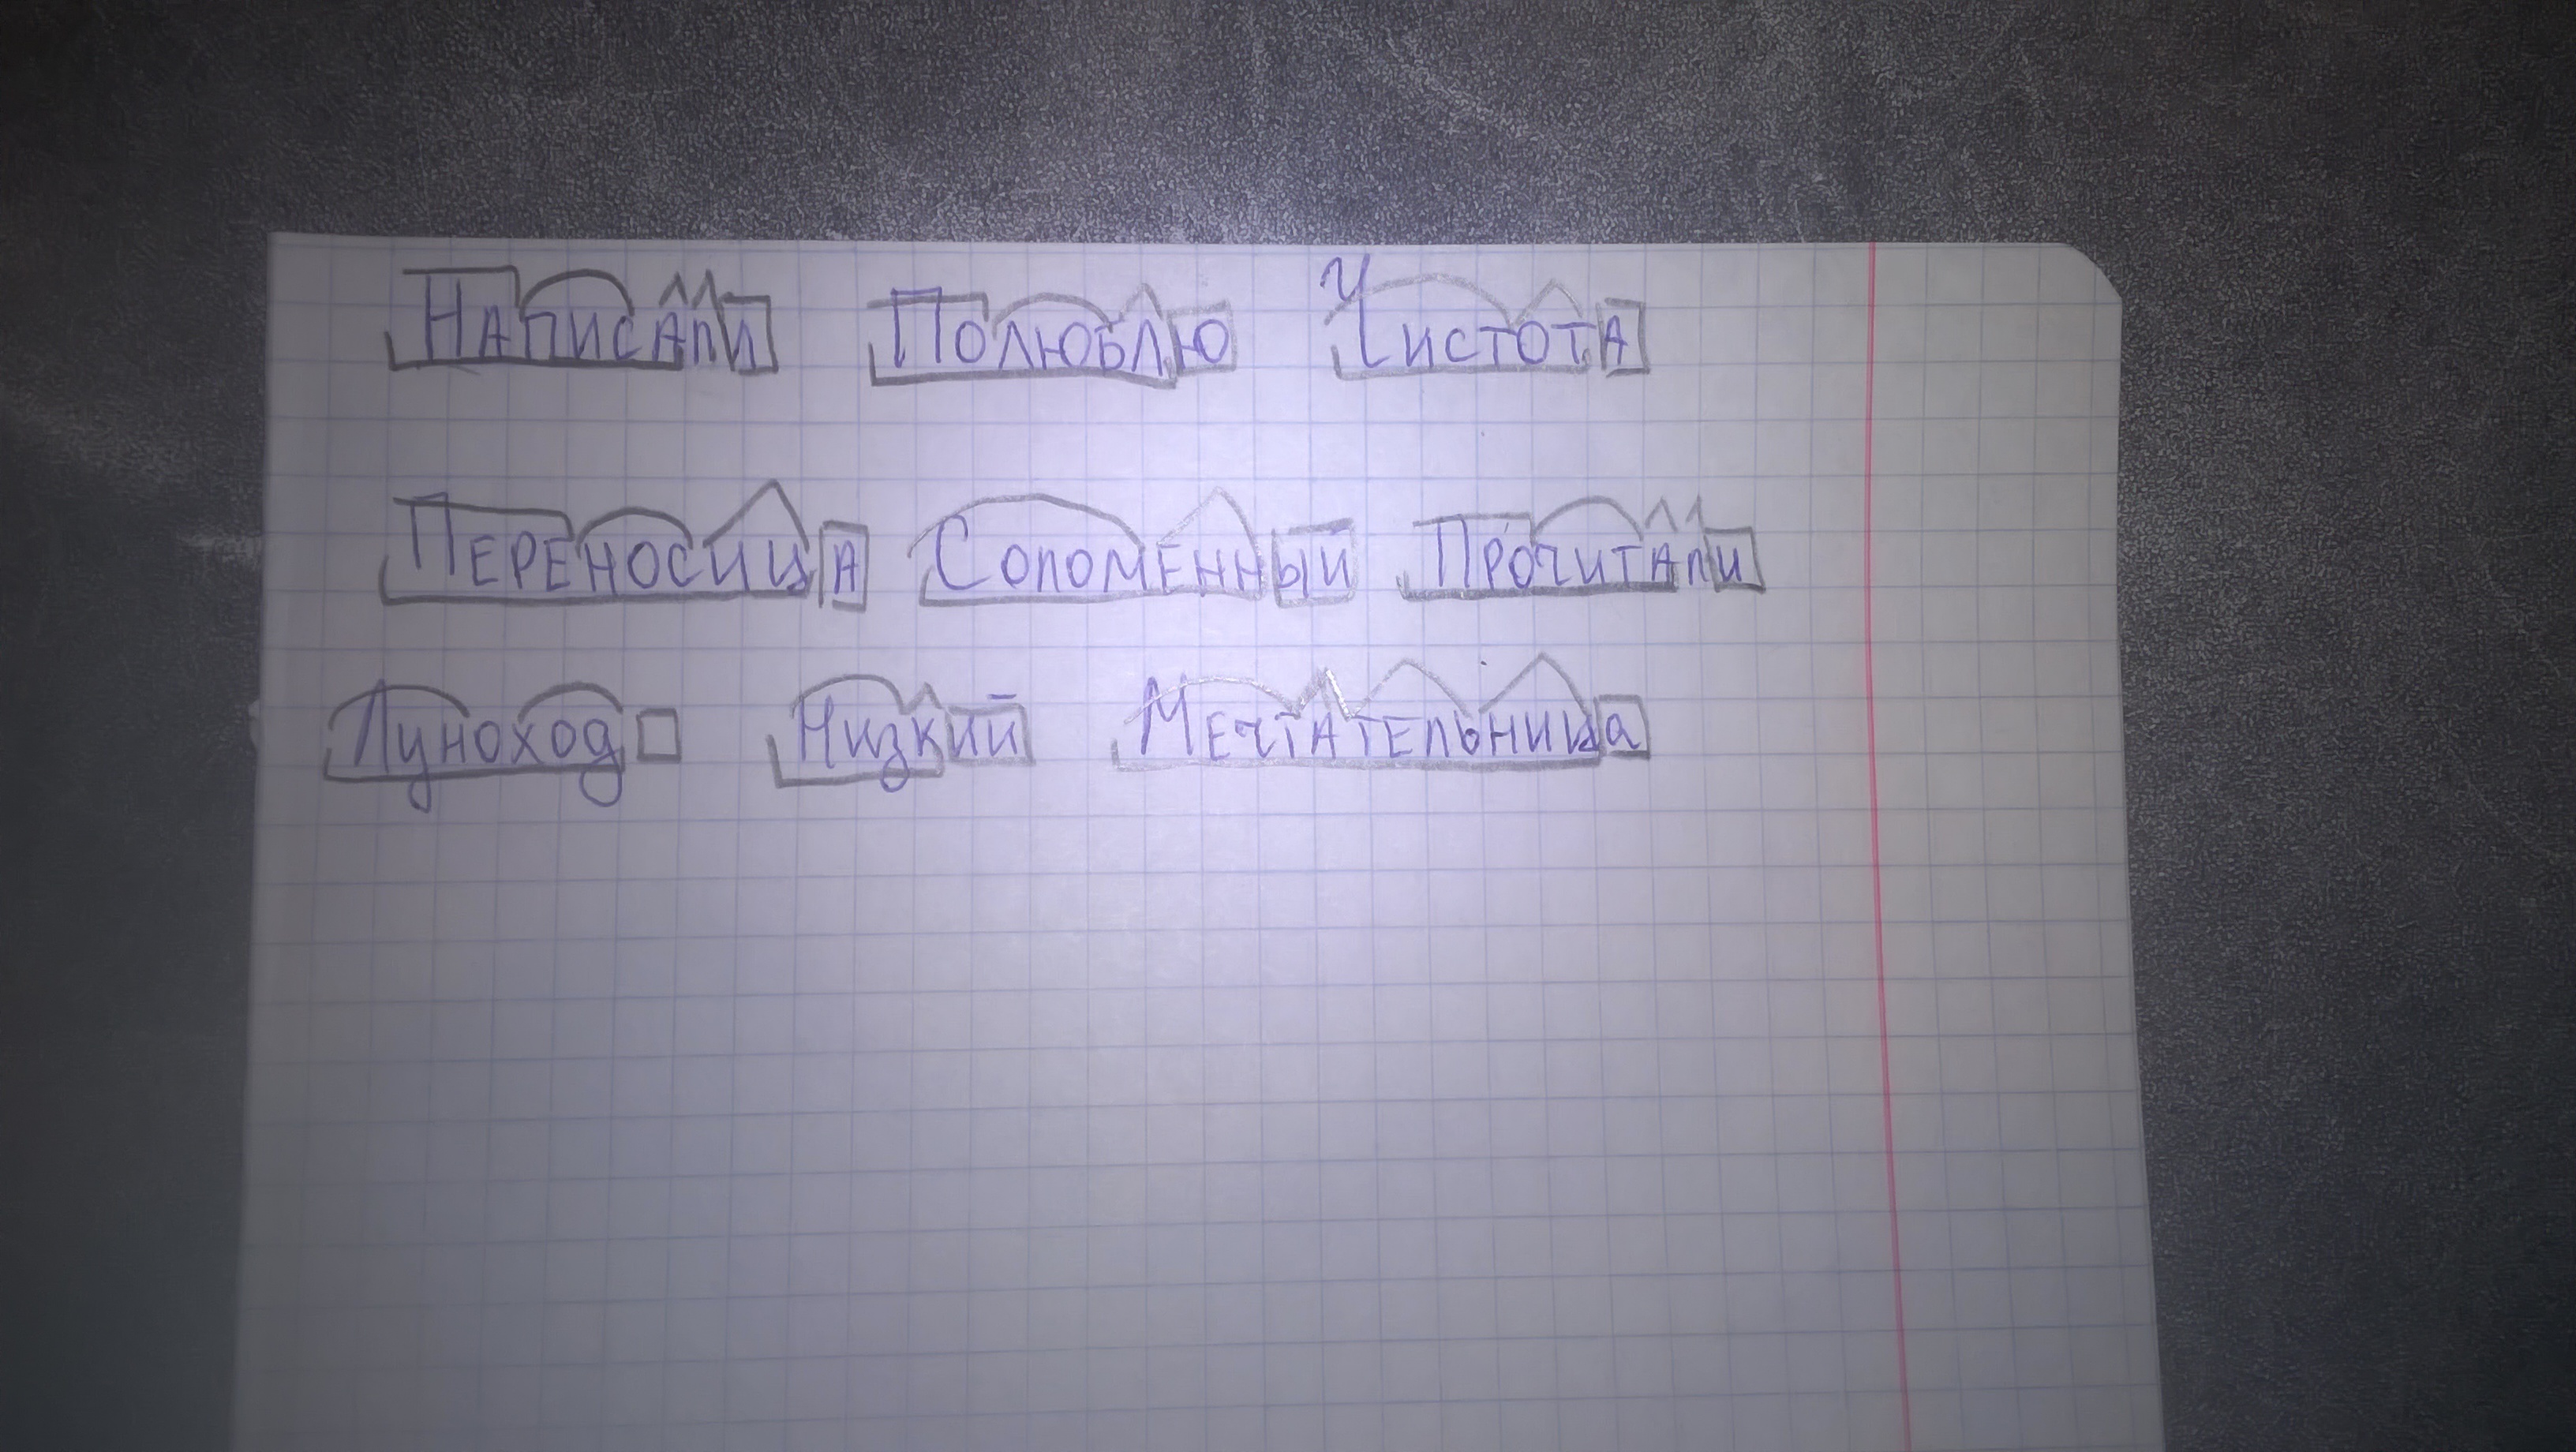 Написали Полюблю Чистота
Переносица Соломенный Прочитали
Луноход Низкий Мечтательница